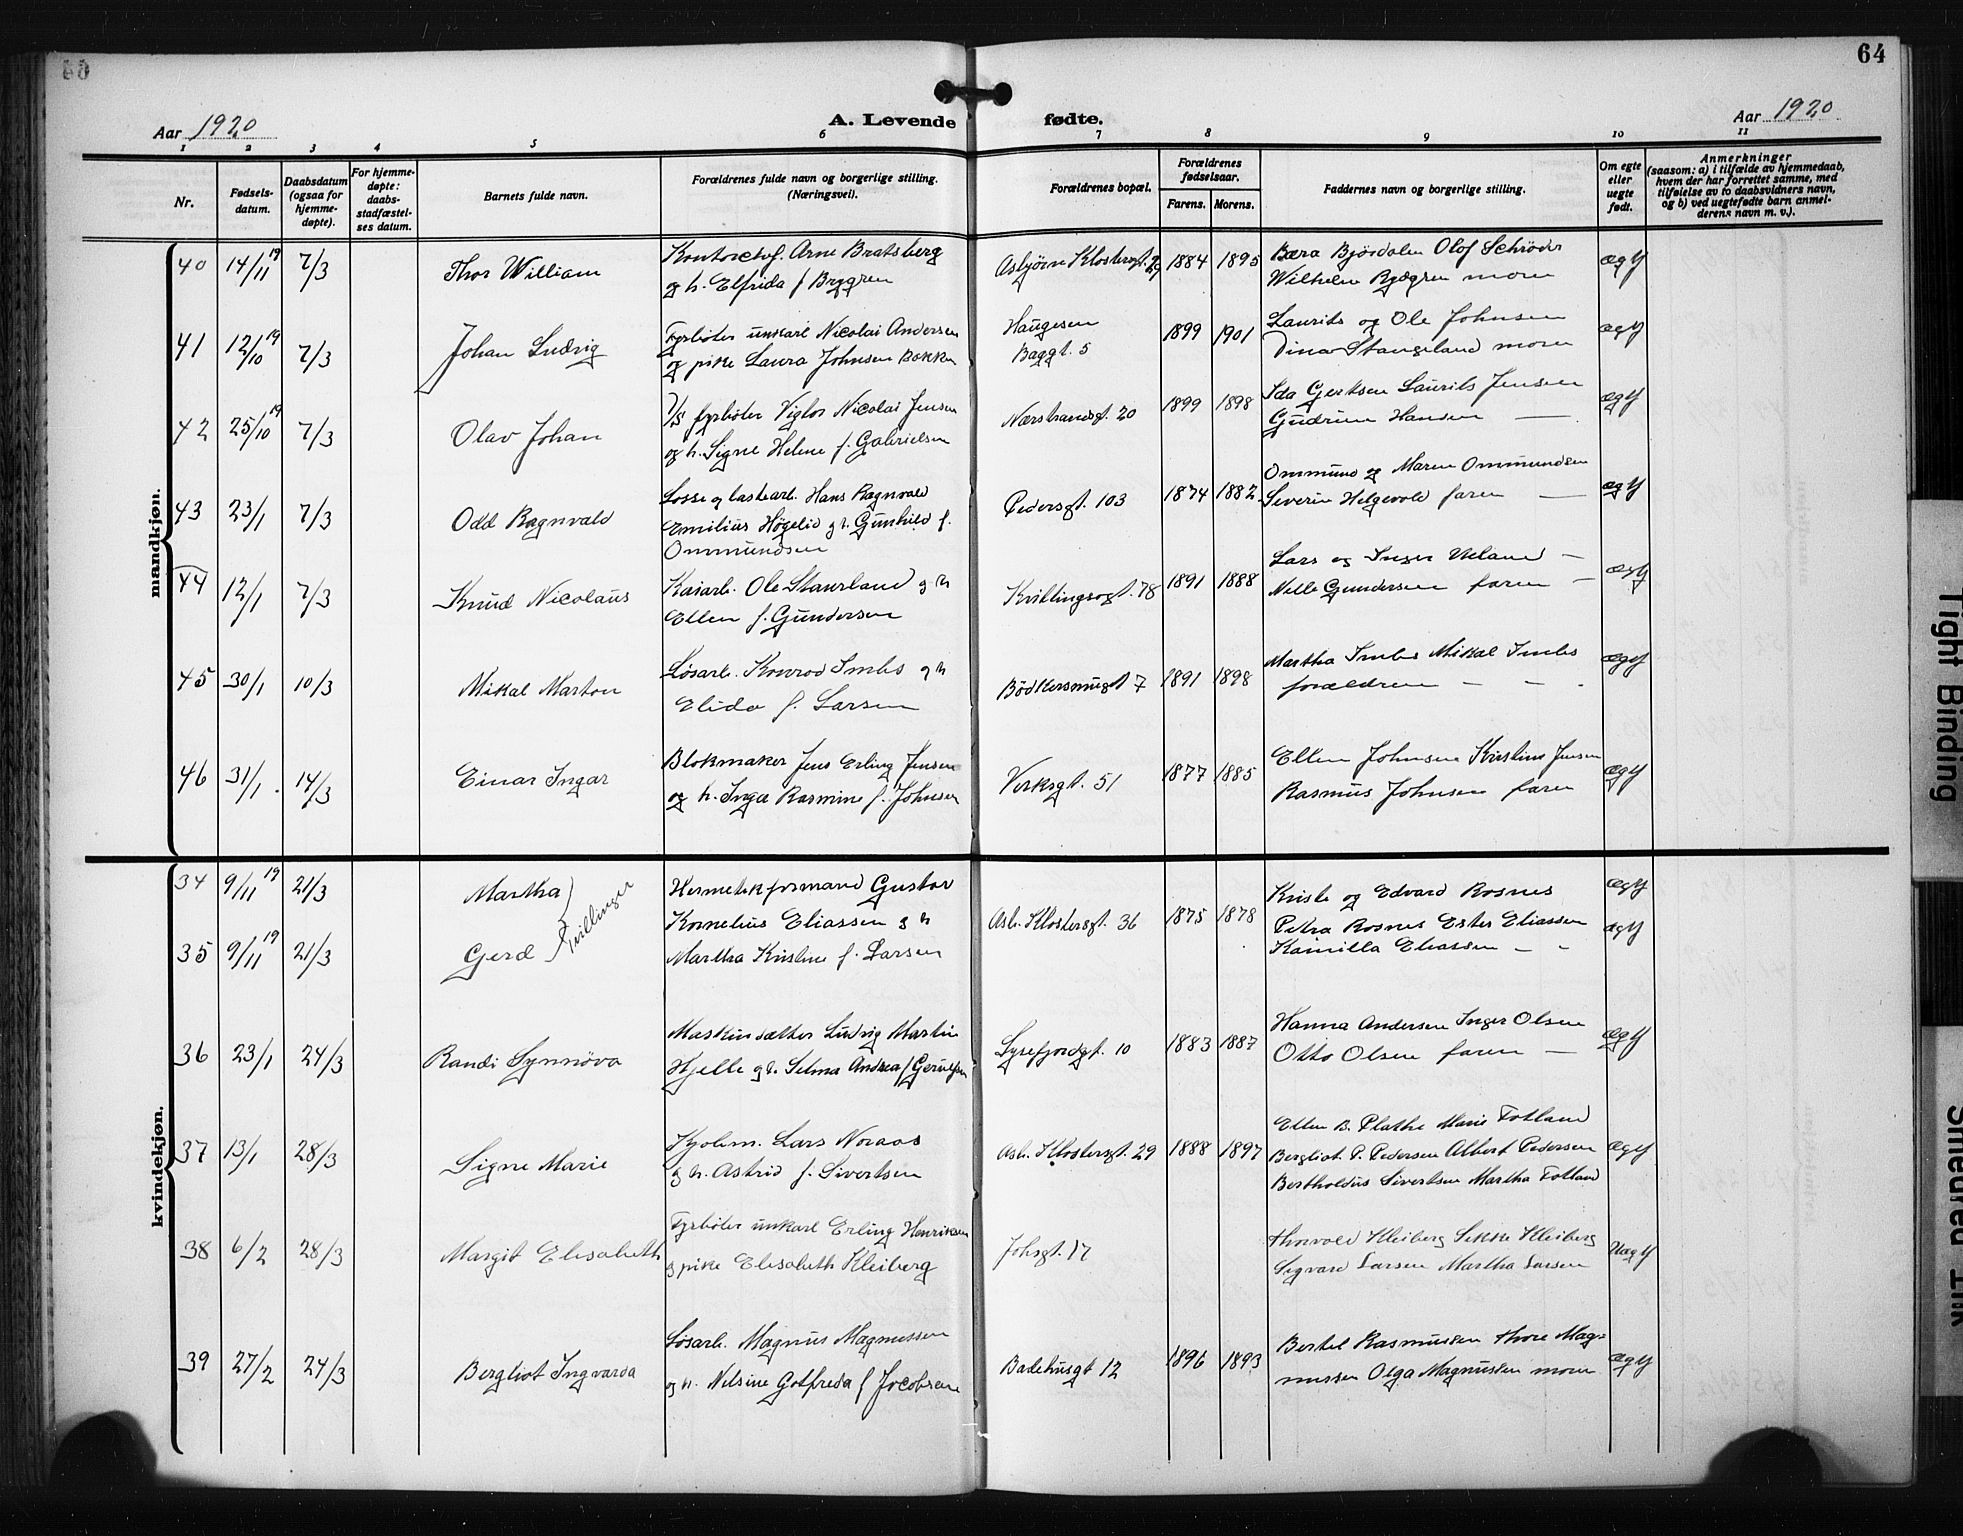 64
Aar 1920
A. Levende fødte.
Aar 1920
1 2 3 4 5 6 7 8 9 10 11
Nr.
Fødsels-
datum.
Daabsdatum
(ogsaa for
hjemme-
døpte).
For hjemme-
døpte:
daabs-
stadfæstel-
ses datum.
Barnets fulde navn.
Forældrenes fulde navn og borgerlige stilling.
(Næringsvei).
Forældrenes bopæl.
Forældrenes
fødselsaar.
Farens. Morens.
Faddernes navn og borgerlige stilling.
Om egte
eller
uegte
født.
Anmerkninger
(saasom: a) i tilfælde av hjemmedaab,
hvem der har forrettet samme, med
tilføielse av to daabsvidners navn,
og b) ved uegtefødte barn anmel-
derens navn m. v.).
mandkjøn.
40 14/11 19 7/3 Thor William
Kontorchef Arne Bratsberg
og h. Elfrida f Brygren
Asbjørn Klostersgt. 29
1884 1895
Bjørdalen Olof Schrøder
Wilhelm moren
ægt
41 12/10 19 7/3 Johan Ludvig
Fyrbøter unkarl Nicolai Andersen
og pike Laura Johnsen Bakken
Haugesen
Baggt. 5
1899 1901
Laurits og Ole Johnsen
Dina Stangeland moren
ægt
42 25/10 19 7/3 Olav Johan
fyrbøter Viglos Nicolai Jensen
og h. Signe Helene f. Gabrielsen
Nærstrandsgt. 20
1899 1898
Ida Gertsen Laurits Jensen
Gudrun Hansen —
ægt
43 23/1 7/3 Odd Ragnvald
Losse og lastearb. Hans Ragnvald
Emilius Høgelid og h. Gunhild f.
Ommundsen
Pedersgt. 103
1874 1882
Ommund og Maren Ommundsen
Severin Helgevold faren —
ægt
44 12/1 7/3 Knud Nicolaus
Kaiarb. Ole Staurland og h
Ellen f. Gundersen
Kvitlingsogt. 78
1891 1888
Lars og Inger Ueland —
Nelle Gundersen faren —
ægt
45 30/1 10/3 Mikal Marton
Løsarb. Konrad Imbs og h
Elida f. Larsen
Bødkersmugt 7
1891 1898
Martha Imbs Mikal Imbs
forældren — —
ægt
46 31/1. 14/3 Einar Ingar
Blokmaker Jens Erling Jensen
og h. Inga Rasmine f. Johnsen
Verksgt. 51
1877 1885
Ellen Johnsen Kristine Jensen
Rasmus Johnsen faren
ægt
kvindekjøn.
34 9/11 19 21/3 Martha
35 9/11 19 21/3 Gerd
Tvillinger
Hermetikformand Gustav
Kornelius Eliassen og h
Martha Kristine f. Larsen
Asb. Klostersgt. 36
1875 1878
Kriste og Edvard Rosnes
Petra Rosnes Ester Eliassen
Kamilla Eliassen — -
ægt
ægt
36 23/1 24/3 Randi Synnøva
Maskinsætter Ludvig Martin
Hjelle og h. Selma Andrea f
Lysefjordgt. 10
1883 1887
Hanna Andersen Inger Olsen
Otto Olsen faren —
ægt
37 13/1 28/3 Signe Marie
Kjølem. Lars Noraas
og h. Astrid f. Sivertsen
Asb. Klostersgt. 29
1888 1897
Ellen B. Plathe Marie Fotland
Bergliot P. Pedersen Albert Pedersen
Bertholdus Sivertsen Martha Fotland
ægt
38 6/2 28/3 Margit Elisabeth
Fyrbøter unkarl Erling Henriksen
og pike Elisabeth Kleiberg
Johsgt. 17
Thorvald Kleiberg Sikke Kleiberg
Sigvard Larsen Martha Larsen
Uægt
39 27/2 24/3 Bergliot Ingvarda
Løsarb. Magnus Magnussen
og h. Nilsine Gotfreda f Jocobsen
Badehusgt 12
1896 1893
Bertel Rasmussen Thore Mag-
nussen Olga Magnussen moren
ægt
Tight Binding
Smeared Ink